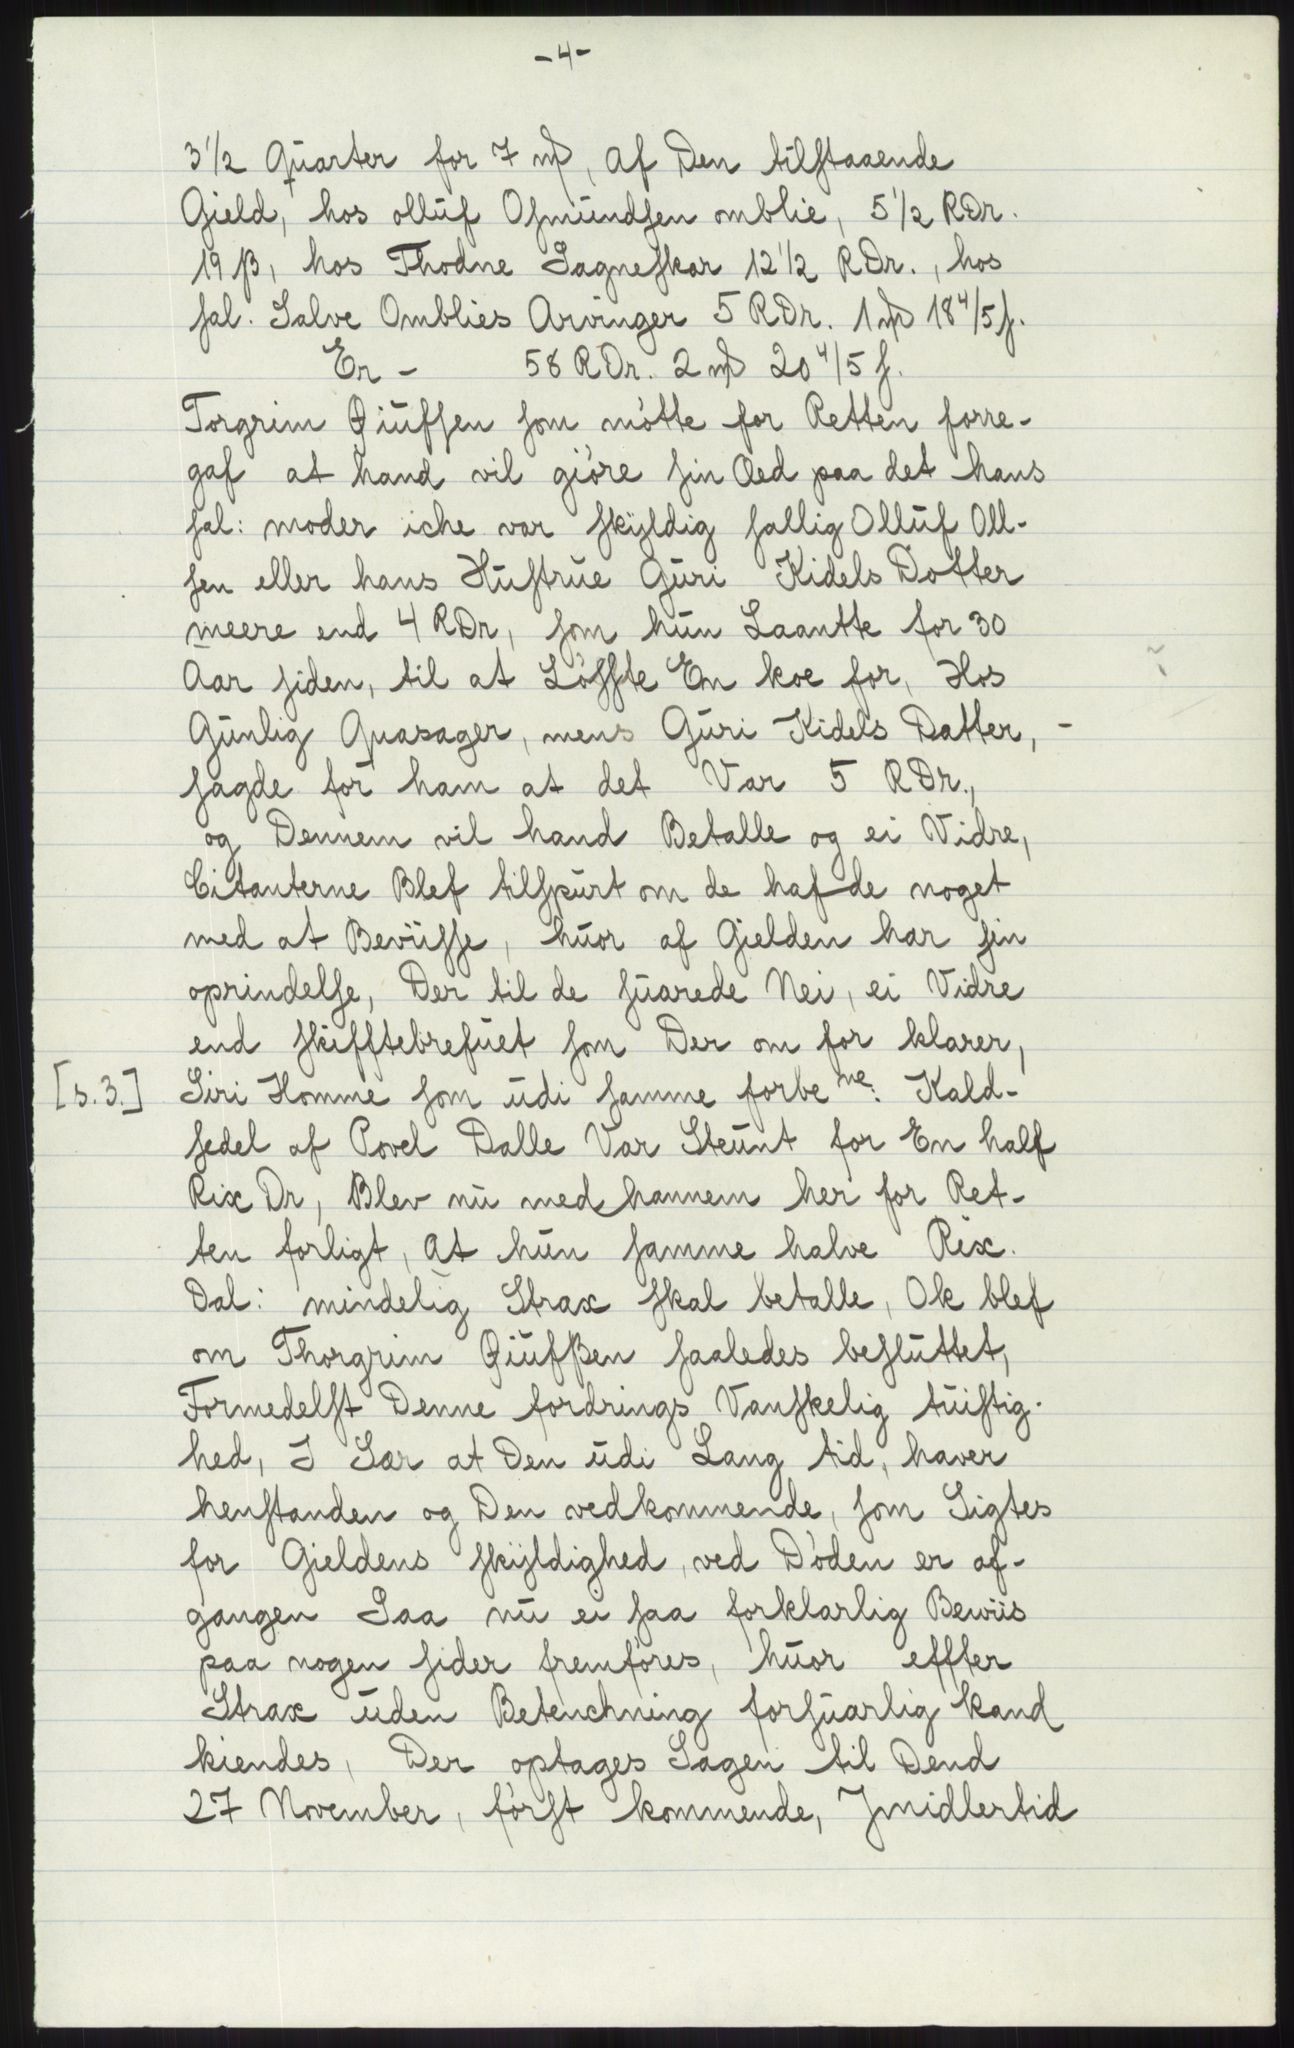 -4-
3½ Quarter for 7 mȹ, af Den tilstaaende
Gield, hos olluf Osmundsen omblie, 5½ RDr.
19 β, hos Thodne Sagneskar 12½ RDr., hos
sal. Salve Omblies Arvinger 5 RDr. 1 mȹ 18 4/5 s.
Er - 58 RDr. 2 mȹ 20 4/5 s.
Torgrim Øiufsen som mötte for Retten forre-
gaf at hand vil giöre sin Aed paa det hans
sal: moder iche var skÿldig sallig Olluf Oll-
sen eller hans Hustrue Guri Kidels Dotter
meere end 4 RDr, som hun Laantte for 30
Aar siden, til at Löffte En koe for, Hos
Gunlig Quasager, mens Guri Kidels Datter, -
sagde for ham at det Var 5 RDr.,
og Dennem vil hand Betalle og ei Vidre,
Citanterne Blef tilspurt om de hafde noget
med at Beviisse, huor af Gielden har sin
oprindelse, Der til de suarede Nei, ei Vidre
end skifftebrefuet som Der om for klarer,
[s. 3.] Siri Homme som udi samme forbe ne: Kald-
sedel af Povel Dalle Var Steunt for En half
Rix Dr, Blev nu med hannem her for Ret-
ten forligt, at hun samme halve Rix.
Dal: mindelig Strax skal betalle, Ok blef
om Thorgrim Øiufßen saaledes besluttet,
Formedelst Denne fordrings Vanskelig tuistig-
hed, I Sær at Den udi Lang tid, haver
henstanden og Den vedkommende, som Sigtes
for Gieldens skÿldighed, ved Döden er af-
gangen Saa nu ei saa forklarlig Bewiis
paa nogen sider fremföres, huor effter
Strax uden Betenchning forsuarlig kand
kiendes, Der optages Sagen til Dend
27 November, först kommende, Jmidlertid